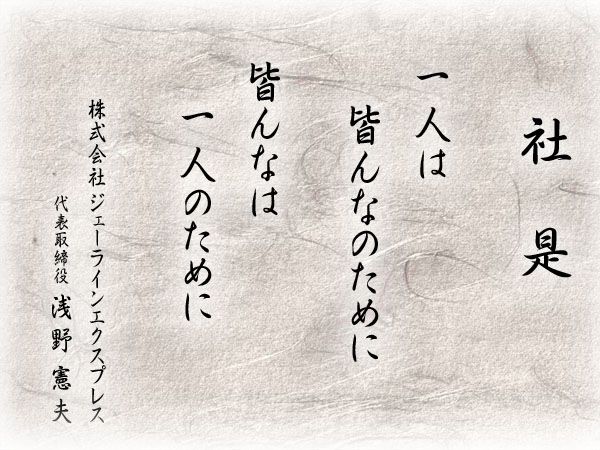 社是
一人は
皆んなのために
皆んなは
一人のために
株式会社ジェーラインエクスプレス
代表取締役 浅野憲夫